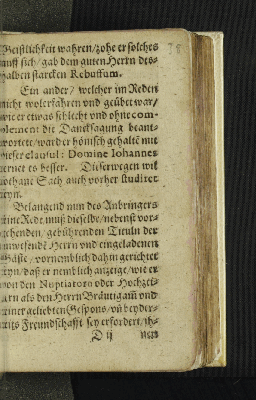 Geistlichkeit wahren/zohe er solches
auff sich/gab dem guten Herrn des-
halben starcken Rebuffum.
Ein ander/ welcher im Reden
nicht wolerfahren und geübet war/
wie er etwas schlecht und ohne com-
plement die Dancksagung beant-
wortete/ward er hönisch gehalten mit
dieser clausul: Domine Iohannes
lernet es besser. Dieserwegen wil
sothane Sach auch vorher studiret
seyn.
Belangend nun des Anbringers
seine Rede/muß dieselbe/nebenst vor-
gehenden/gebührenden Tituln der
anwesende Herrn und eingeladenen
Gäste/vornemblich dahin gerichtet
seyn/daß er nemblich anzeige/wie er
von den Nuptiatorn oder Hochzei-
tern als den Herrn Bräutigam und
seiner geliebten Gespons/uñ beyder-
seits Freundschafft sey erfordert/ih-
D ij
nen
78